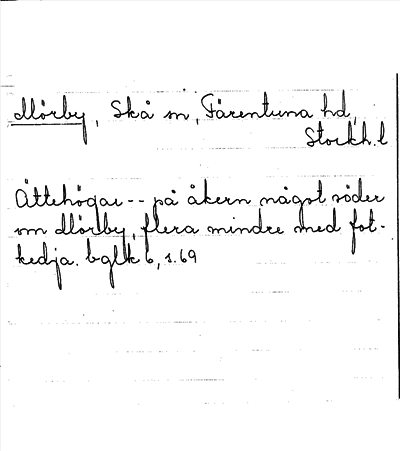 Mörby, Skå sn, Färentuna hd,
Stockh. l
Ättehögar -- på åkern något söder
om Mörby, flera mindre med fot-
kedja. bglk 6, s. 69